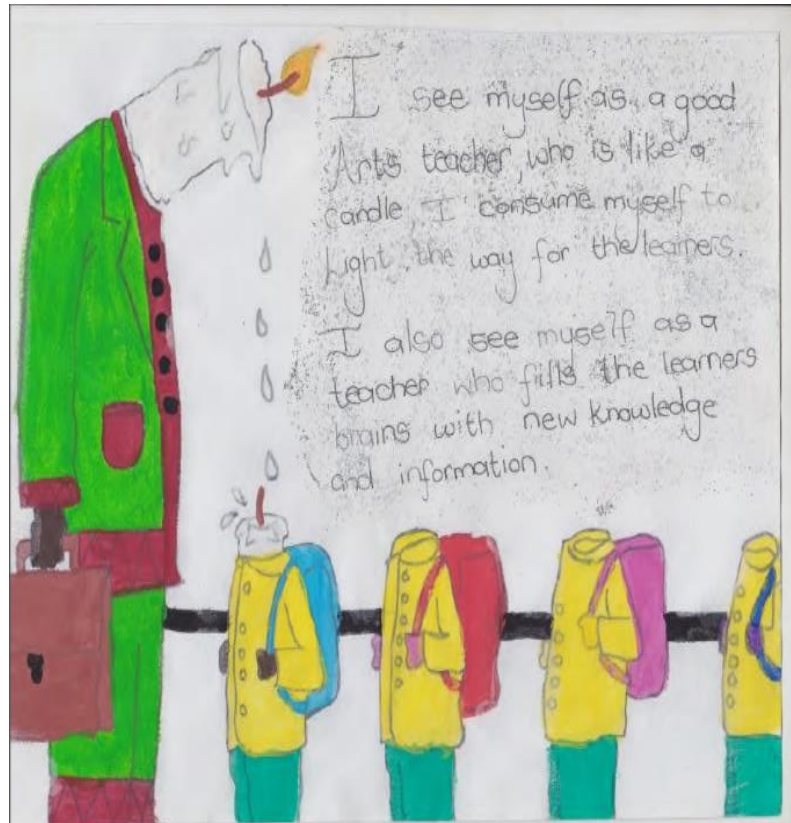 I see myself as a good
Arts teacher, who is like a
candle I consume myself to
Light the way for the learners.
I also see myself as a
teacher who fills the learners
brains with new knowledge
and information.